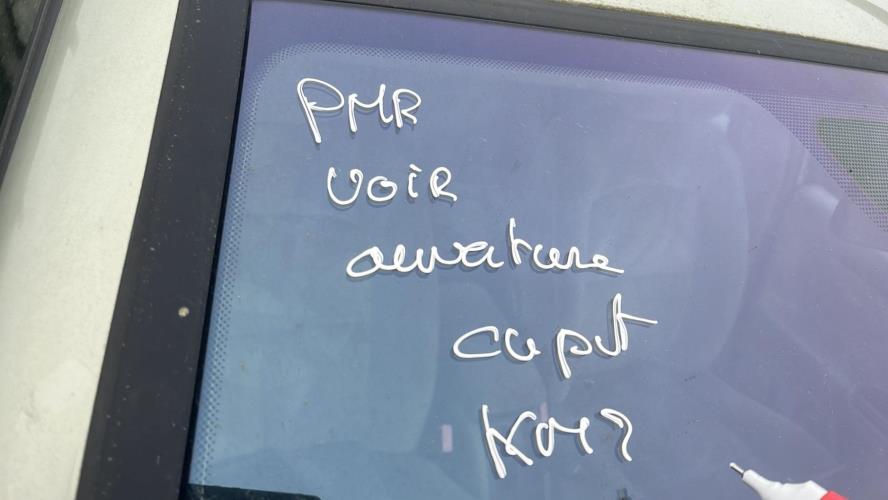 PMR
VOIR
ouverture
capot